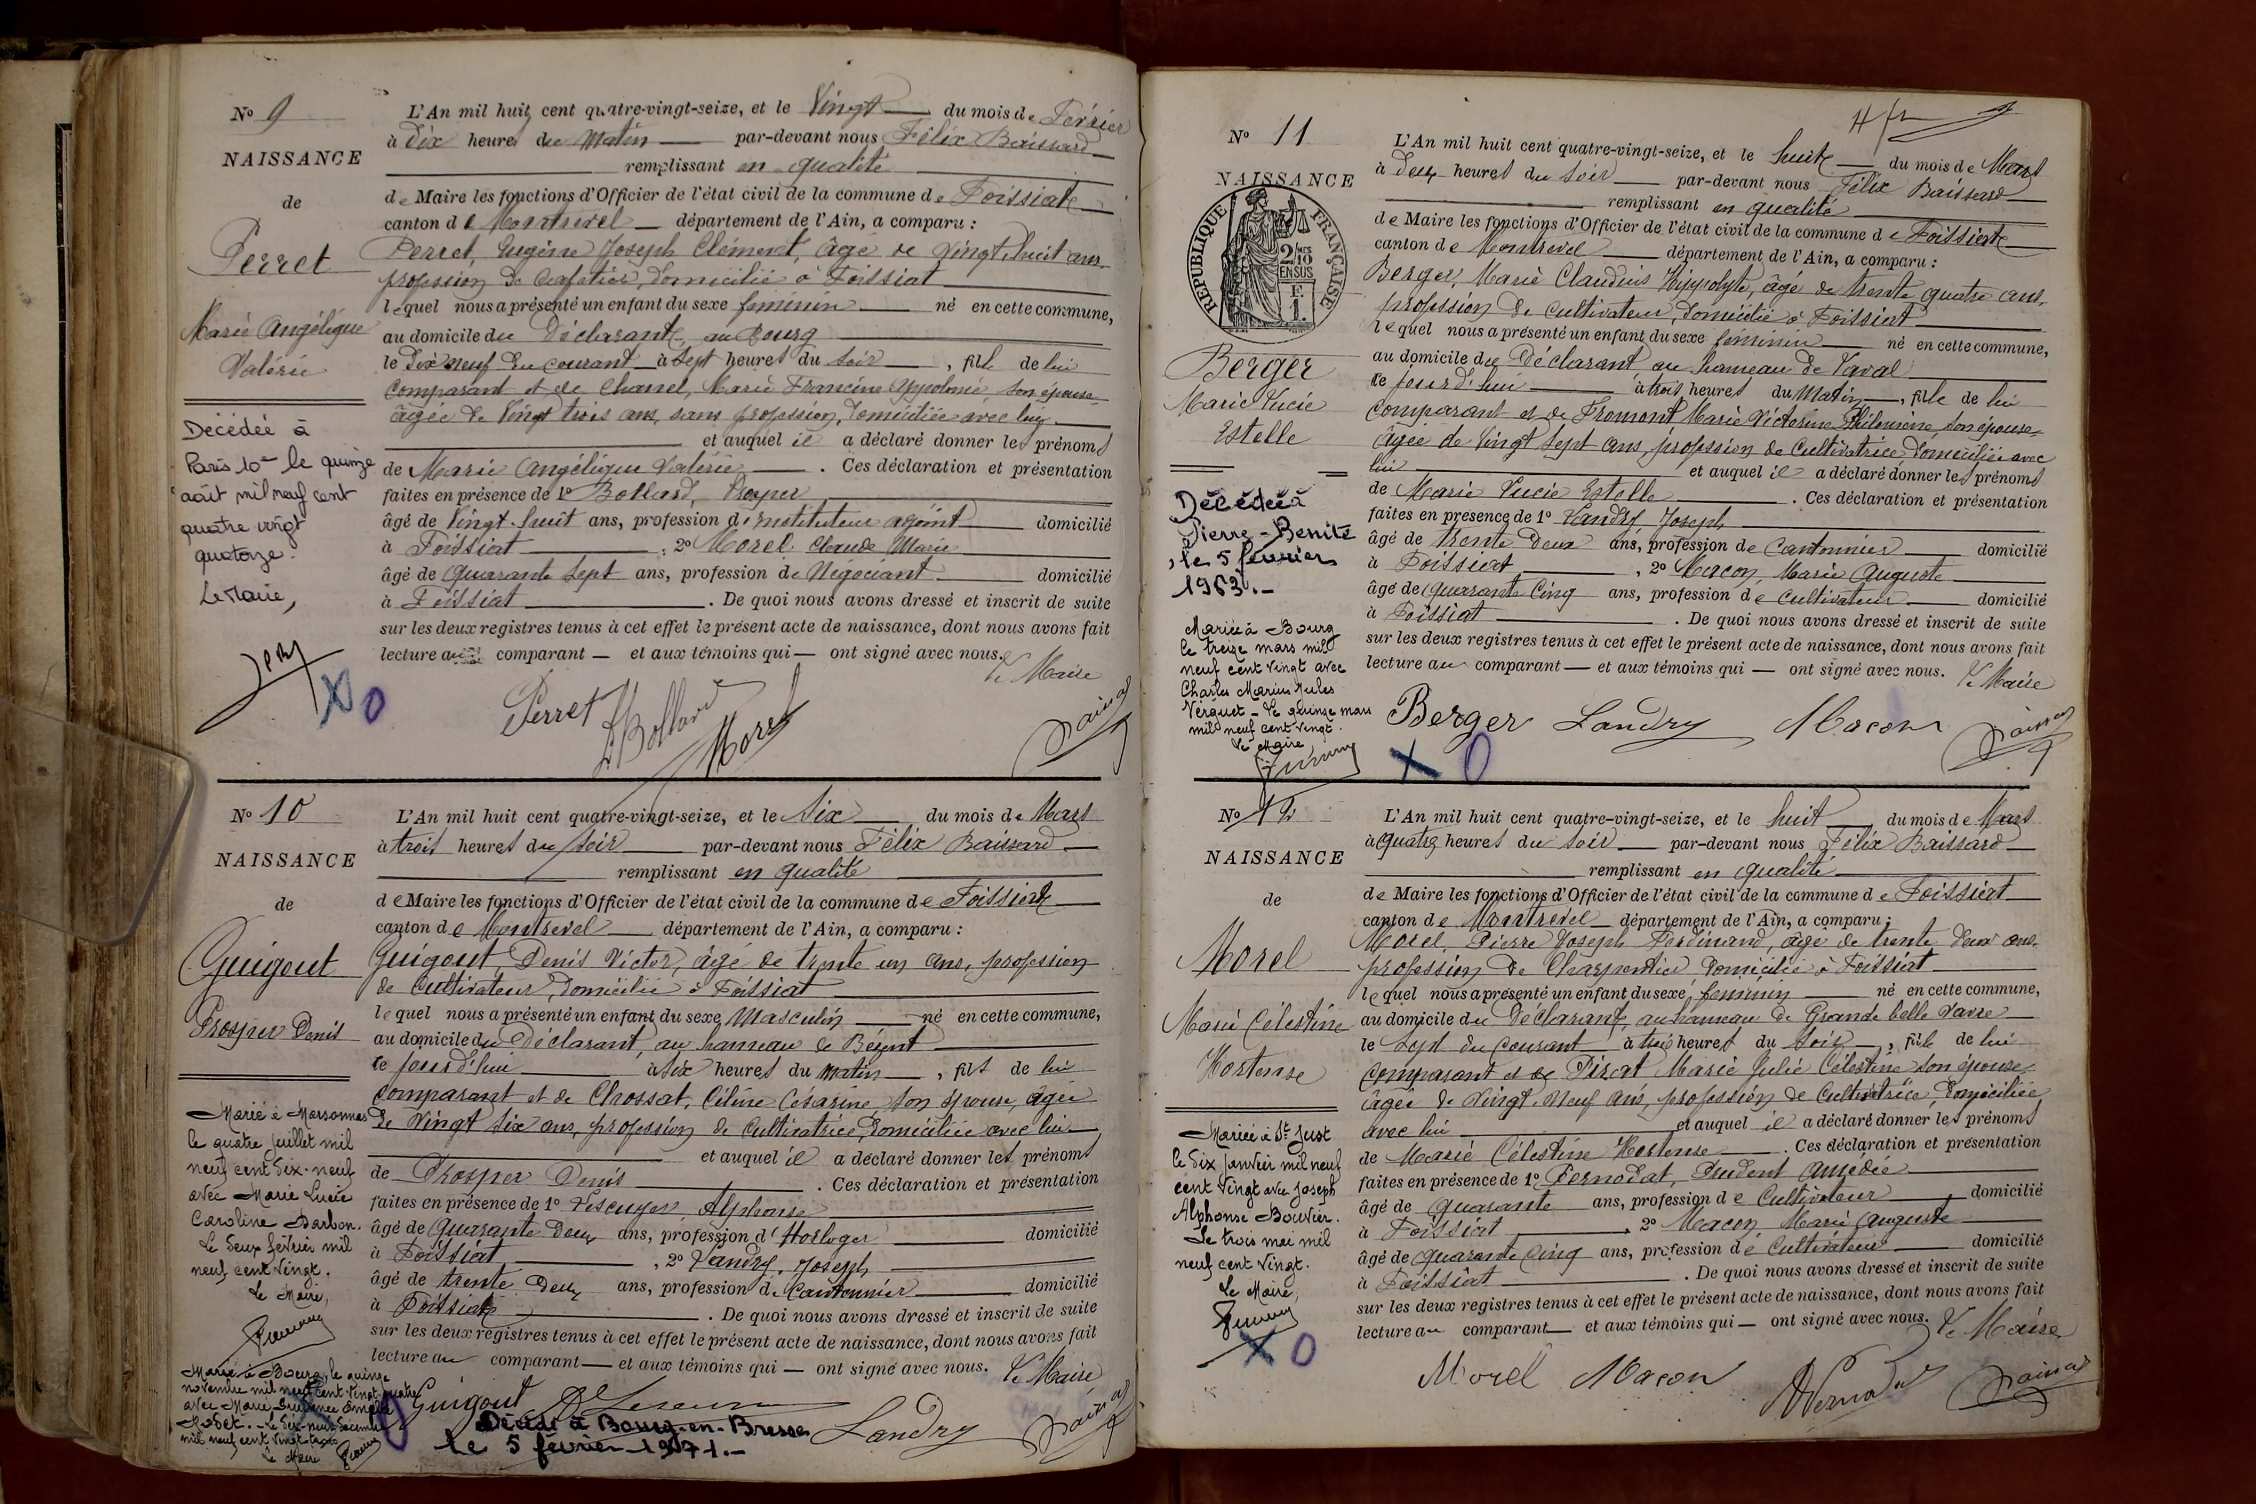 No 9
NAISSANCE
de
Perret
Marie Angélique
Valérie
Décédée à
Paris 10e le quinze
août mil neuf cent
quatre vingt
quatorze.
Le Maire,
L'An mil huit cent quatre-vingt-seize, et le Vingt du mois de Février
à Dix heures du Matin par-devant nous Félix Baissard
remplissant en qualité
de Maire les fonctions d'Officier de l'état civil de la commune de Foissiat
canton de Montrevel département de l'Ain, a comparu :
Perret, Eugène Joseph Clément, âgé de Vingt-huit ans
profession de Cafetier, domicilié à Foissiat
lequel nous a présenté un enfant du sexe féminin né en cette commune,
au domicile du Déclarant, au Bourg
le Dix neuf du courant à Sept heures du soir, fille de lui
comparant et de Charnel, Marie Francine Appolonie, son épouse
âgée de Vingt trois ans, sans profession, domiciliée avec lui
et auquel il a déclaré donner les prénoms
de Marie Angélique Valérie. Ces déclaration et présentation
faites en présence de 1o Bolland, Prosper
âgé de Vingt-huit ans, profession d'instituteur adjoint domicilié
à Foissiat, 2o Morel Claude Marie
âgé de quarante sept ans, profession de Négociant domicilié
à Foissiat. De quoi nous avons dressé et inscrit de suite
sur les deux registres tenus à cet effet le présent acte de naissance, dont nous avons fait
lecture au comparant et aux témoins qui ont signé avec nous.
Le Maire
Perret Bolland Morel
No 10
NAISSANCE
de
Guigout
Prosper Denis
Marié à Marsonnas
le quatre juillet mil
neuf cent dix-neuf
avec Marie Lucie
Caroline Barbon.
Le deux février mil
neuf cent vingt.
Le Maire,
Marié à Bourg, le quinze
novembre mil neuf cent vingt quatre
avec Marie
Le dix-neuf décembre
mil neuf cent vingt
Le Maire
L'An mil huit cent quatre-vingt-seize, et le Six du mois de Mars
à trois heures du soir par-devant nous Félix Baissard
remplissant en qualité
de Maire les fonctions d'Officier de l'état civil de la commune de Foissiat
canton de Montrevel département de l'Ain, a comparu :
Guigout Denis Victor, âgé de trente un ans, profession
de Cultivateur, domicilié à Foissiat
lequel nous a présenté un enfant du sexe Masculin né en cette commune,
au domicile du Déclarant, au hameau de
ce jourd'hui à six heures du matin, fils de lui
comparant et de Chossat, Céline Césarine, son épouse, âgée
de Vingt six ans, profession de Cultivatrice, domiciliée avec lui
et auquel il a déclaré donner les prénoms
de Prosper Denis. Ces déclaration et présentation
faites en présence de 1o Lescuyer Alphonse
âgé de quarante deux ans, profession d'Horloger domicilié
à Foissiat, 2o Landry, Joseph
âgé de trente deux ans, profession de Cantonnier domicilié
à Foissiat. De quoi nous avons dressé et inscrit de suite
sur les deux registres tenus à cet effet le présent acte de naissance, dont nous avons fait
lecture au comparant et aux témoins qui ont signé avec nous.
Le Maire
Guigout Landry
Décédé à Bourg-en-Bresse
le 5 février 1971.-
No 11
NAISSANCE
RÉPUBLIQUE FRANÇAISE
2/10
EN SUS
F.
1.
Berger
Marie Lucie
Estelle
Décédée à
Pierre-Bénite
, le 5 février
1963.-
Mariée à Bourg
le treize mars mil
neuf cent vingt avec
Charles Marius Jules
Verguet - Le quinze mars
mil neuf cent vingt.
Le Maire
L'An mil huit cent quatre-vingt-seize, et le huit du mois de Mars
à deux heures du soir par-devant nous Félix Baissard
remplissant en qualité
de Maire les fonctions d'Officier de l'état civil de la commune de Foissiat
canton de Montrevel département de l'Ain, a comparu :
Berger, Marie Claudius Hippolyte, âgé de trente quatre ans,
profession de Cultivateur, domicilié à Foissiat
lequel nous a présenté un enfant du sexe féminin né en cette commune,
au domicile du Déclarant au hameau de Laval
ce jourd'hui à trois heures du Matin, fille de lui
comparant et de Fromont, Marie Victorine Philomène, son épouse
âgée de Vingt sept ans, profession de Cultivatrice, domiciliée avec
lui et auquel il a déclaré donner les prénoms
de Marie Lucie Estelle. Ces déclaration et présentation
faites en présence de 1o Landry, Joseph
âgé de trente deux ans, profession de Cantonnier domicilié
à Foissiat, 2o Macon, Marie Auguste
âgé de quarante Cinq ans, profession de Cultivateur domicilié
à Foissiat. De quoi nous avons dressé et inscrit de suite
sur les deux registres tenus à cet effet le présent acte de naissance, dont nous avons fait
lecture au comparant et aux témoins qui ont signé avec nous.
Le Maire
Berger Landry Macon
No 12
NAISSANCE
de
Morel
Marie Célestine
Hortense
Mariée à St Just
le dix janvier mil neuf
cent vingt avec Joseph
Alphonse Bouvier.
Le trois mai mil
neuf cent vingt.
Le Maire,
L'An mil huit cent quatre-vingt-seize, et le huit du mois de Mars
à quatre heures du soir par-devant nous Félix Baissard
remplissant en qualité
de Maire les fonctions d'Officier de l'état civil de la commune de Foissiat
canton de Montrevel département de l'Ain, a comparu :
Morel, Pierre Joseph Ferdinand, âgé de trente deux ans
profession de Charpentier domicilié à Foissiat
lequel nous a présenté un enfant du sexe féminin né en cette commune,
au domicile du Déclarant, au hameau de Grande belle
le Sept du courant à trois heures du soir, fille de lui
comparant et de Pirat Marie Julie Célestine son épouse
âgée de Vingt-Neuf ans, profession de Cultivatrice, domiciliée
avec lui et auquel il a déclaré donner les prénoms
de Marie Célestine Hortense. Ces déclaration et présentation
faites en présence de 1o Pernodat, Prudent Amédée
âgé de quarante ans, profession de Cultivateur, domicilié
à Foissiat, 2o Macon Marie Auguste
âgé de quarante Cinq ans, profession de Cultivateur domicilié
à Foissiat. De quoi nous avons dressé et inscrit de suite
sur les deux registres tenus à cet effet le présent acte de naissance, dont nous avons fait
lecture au comparant et aux témoins qui ont signé avec nous.
Le Maire
Morel Macon